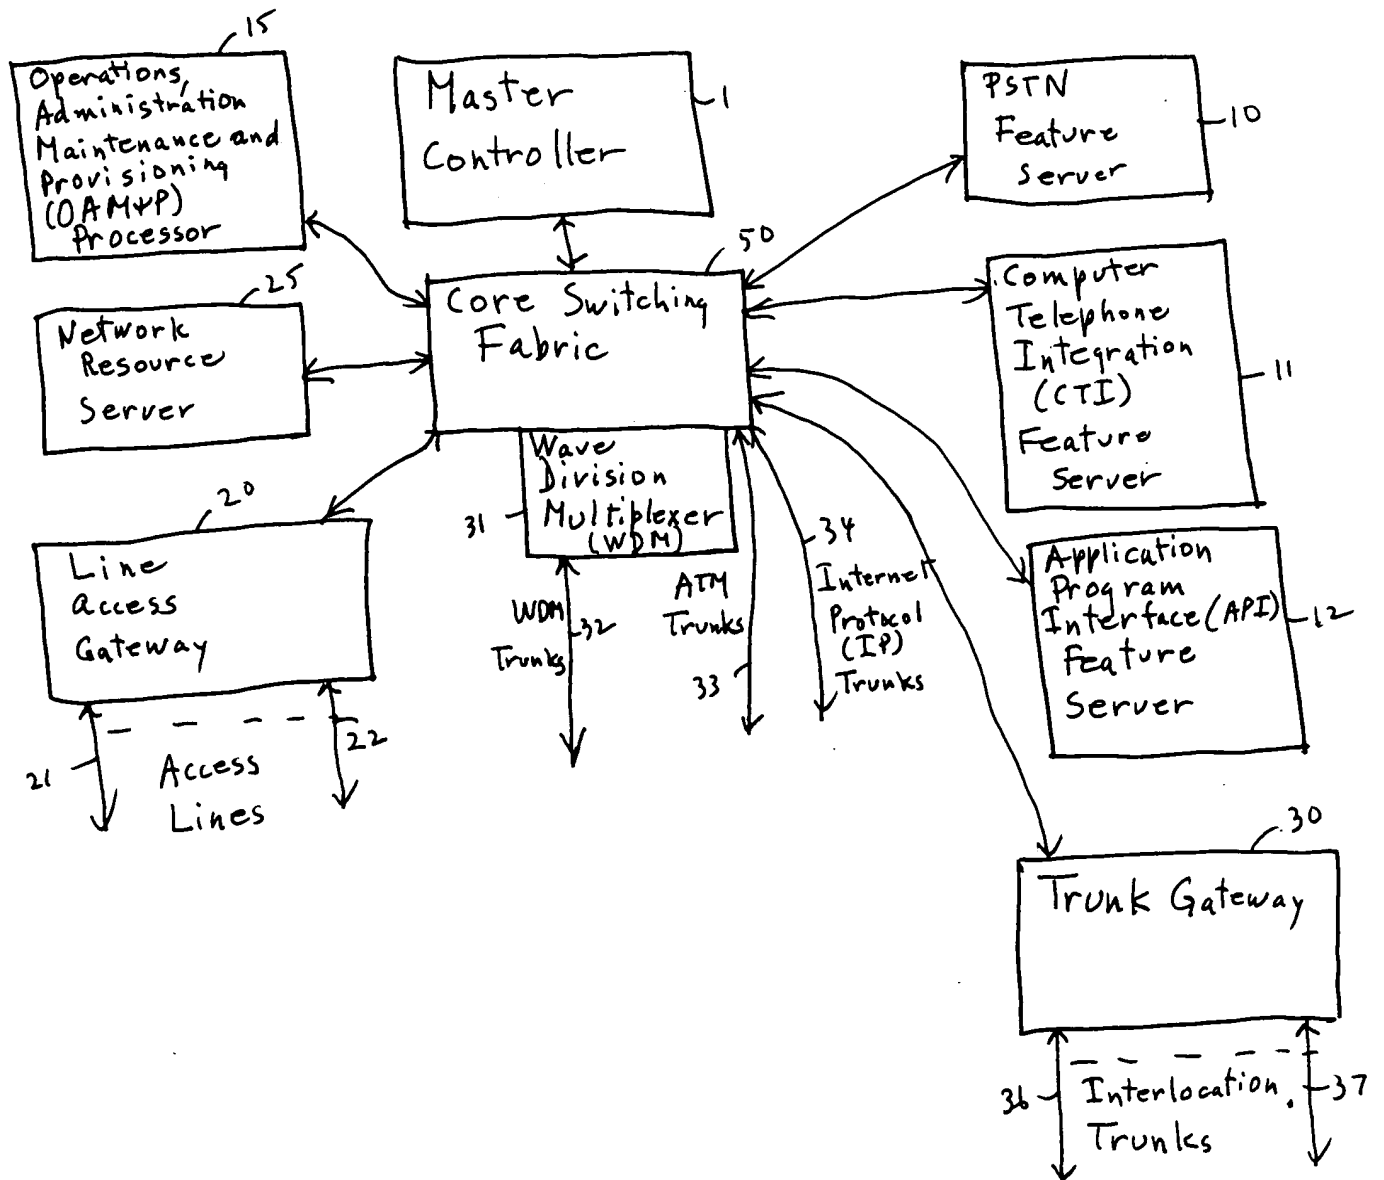 15
Operations,
Administration
Maintenance and
Provisioning
(OAM+P)
Processor
Master
Controller
1
PSTN
Feature
Server
10
50
Core Switching
Fabric
25
Network
Resource
Server
Computer
Telephone
Integration
(CTI)
Feature
Server
11
20
Line
Access
Gateway
Wave
Division
Multiplexer
(WDM)
31
WDM
Trunks
32
ATM
Trunks
33
34
Internet
Protocol
(IP)
Trunks
Application
Program
Interface (API)
Feature
Server
12
21
22
Access
Lines
30
Trunk Gateway
36
Interlocation
Trunks
37